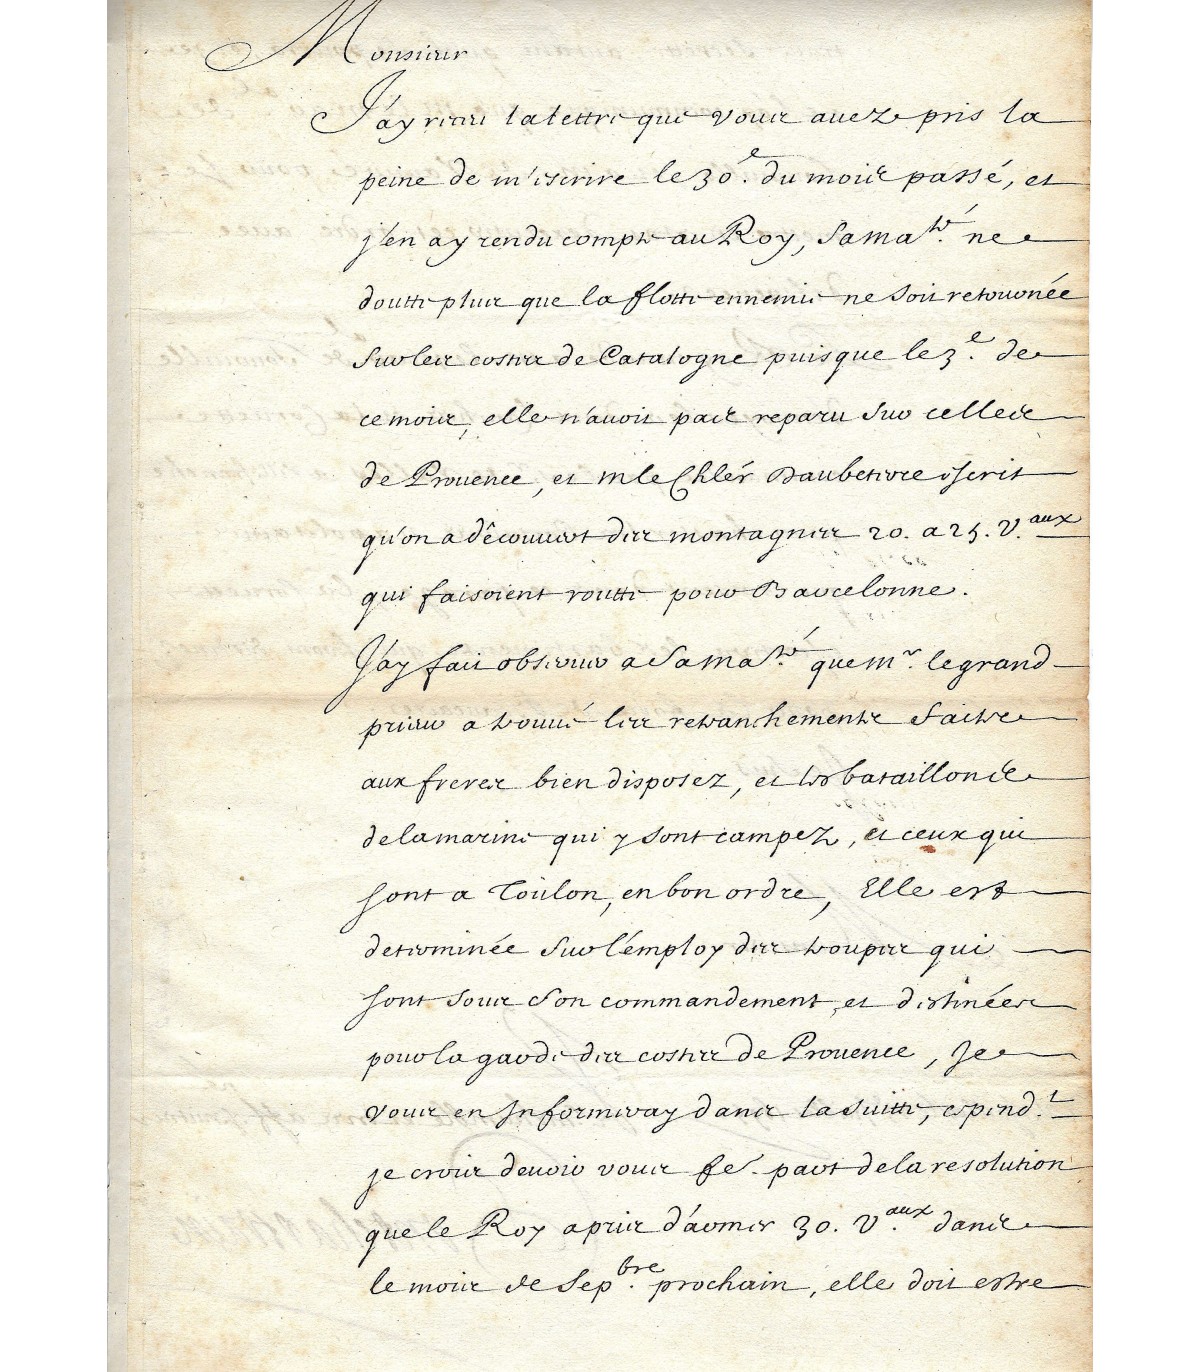 Monsieur
J'ay receu la lettre que vous avez pris la
peine de m'escrire le 30.e du mois passé, et
j'en ay rendu compte au Roy, Sa Ma.té ne
doutte plus que la flotte ennemie ne soit retournée
sur les costes de Catalogne puisque le 3.e de
ce mois, elle n'avoit pas reparu sur celles
de Prouence, et m le Chler Daubeterre escrit
qu'on a découuert des montagnes 20. a 25. V.aux
qui faisoient routte pour Barcelonne.
J'ay fait obseruer a Sa Ma.té que m.r le grand
prieur a trouué les retranchements faits
aux freres bien disposez, et les bataillons
de la marine qui y sont campez, et ceux qui
sont a Toulon, en bon ordre, Elle est
determinée sur l'employ des troupes qui
sont sous son commandement, et destinées
pour la garde des costes de Prouence, Je
vous en Informeray dans la suitte, cepend.t
je crois deuoir vous fe. part de la resolution
que le Roy a prise d'armer 30. V.aux dans
le mois de Sep.bre prochain, elle doit estre